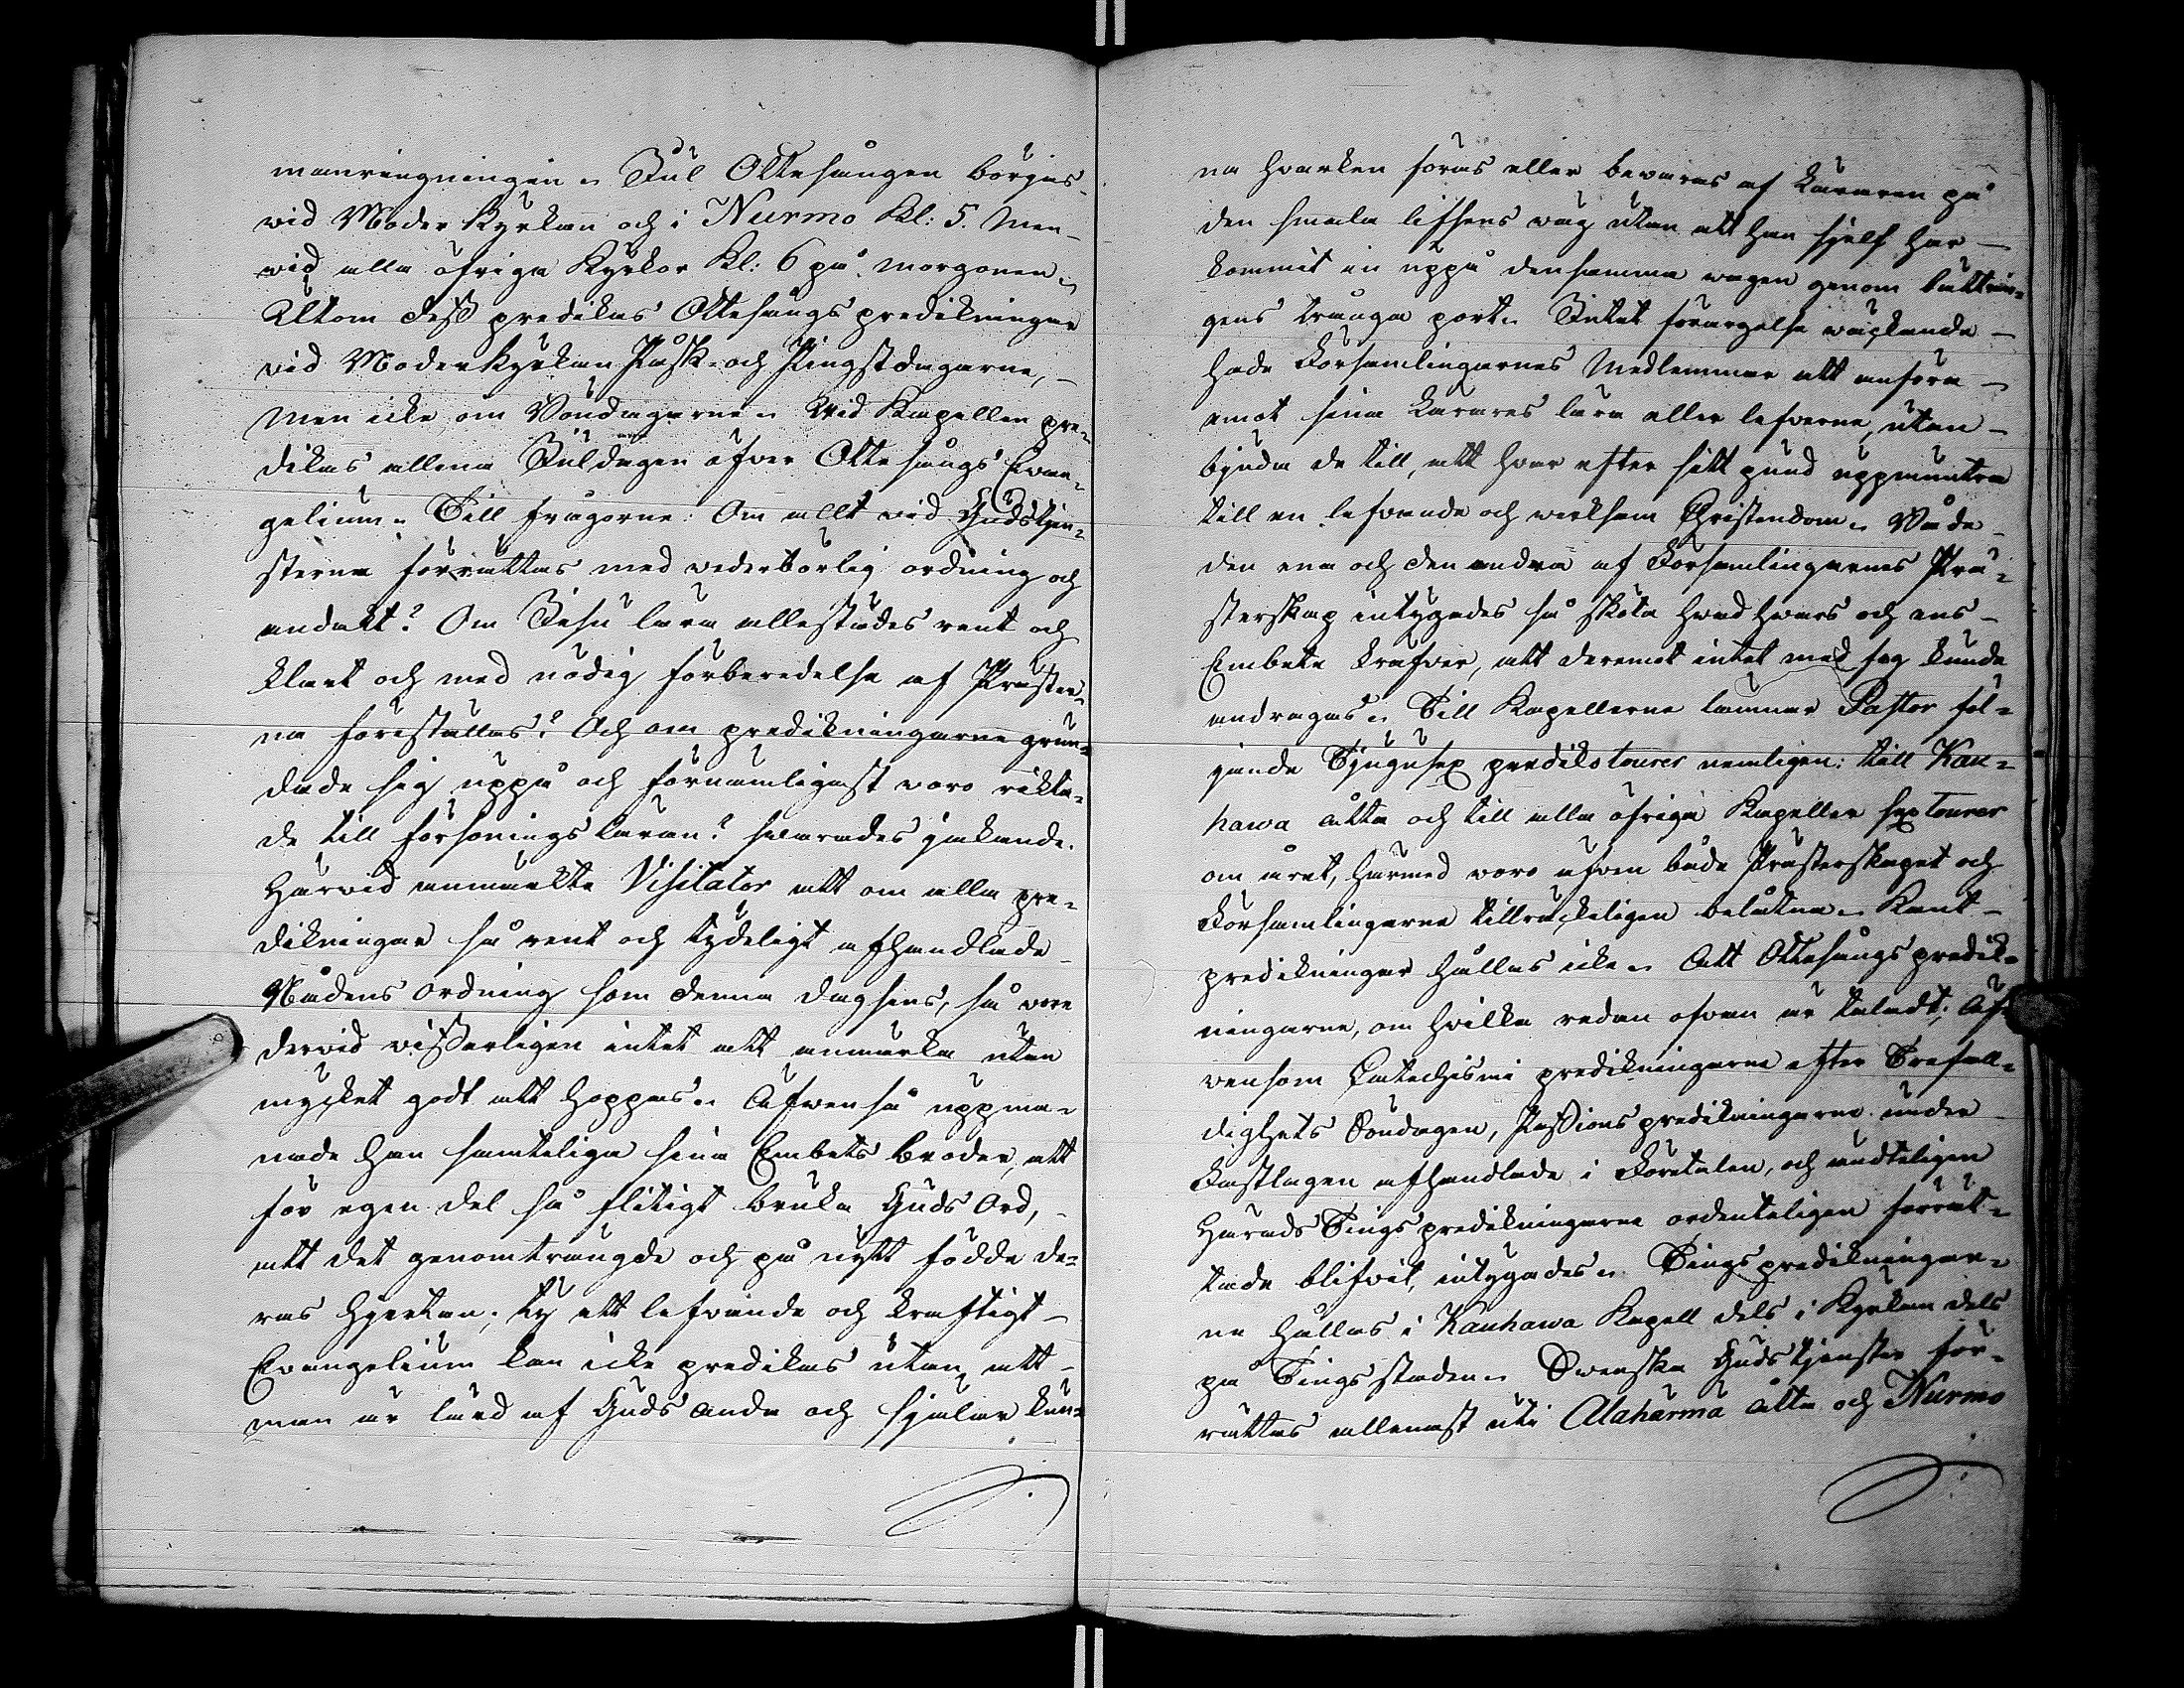 manringningen. Jul Ottesången börjas
vid Moder Kyrkan och i Nurmo Kl: 5. men
vid alla öfriga Kyrkor Kl: 6 på morgonen.
Utom dess predikas Ottesångs predikningar
vid Moderkyrkan Påsk- och Pingstdagarne,
men icke om Böndagarne. Vid Kapellen pre-
dikas allena Juldagen öfver Ottesångs Evan-
gelium. Till frågorne: Om allt vid Gudstjen-
sterna förrättas med vederbörlig ordning och
andakt? Om Jesu lära allestädes rent och
klart och med nödig förberedelse af Präster-
na föreställes? Och om predikningarne grun-
dade sig uppå och förnämligast voro rikta-
de till försonings läran? svarades jakande.
Härvid anmärkte Visitator att om alla pre-
dikningar så rent och tydeligt afhandlade
Nådens ordning som denna dagsens, så vore
dervid visserligen intet att anmärka utan
mycket godt att hoppas. Äfven så uppma-
nade han samtelige sina Embets bröder, att
för egen del så flitigt bruka Guds Ord,
att det genomträngde och på nytt födde de-
ras hjertan; ty ett lefvande och kraftigt
Evangelium kan icke predikas utan att
man är lärd af Guds Anda och själar kun-
na hvarken föras eller bevaras af Läraren på
den smala lifsens väg utan att han sjelf har
kommit in uppå den samma vägen genom bättrin-
gens trånga port. Intet förargelse väckande
hade Församlingarnes Medlemmar att anföra
emot sina Lärares lära eller lefverne, utan
bjuda de till, att hvar efter sitt pund uppmuntra
till en lefvande och verksam Christendom. Både
den ena och den andra af Församlingarnes Prä-
sterskap intygades så sköta hvad hvars och ens
Embete kräfver, att deremot intet med fog kunde
andragas. Till Kapellerne lämnar Pastor föl-
jande Tjugusex predikotourer nemligen: till Kau-
hawa åtta och till alla öfriga Kapeller sex tourer
om året, härmed voro äfven både Prästerskapet och
Församlingarne tillräckeligen belåtne.
predikningar hålles icke. Att Ottesångs predik-
ningarne, om hvilka redan ofvan är taladt; Äf-
vensom Catechismi predikningarne efter Trefall-
dighets Söndagen, Passions predikningarne under
Fastlagen afhandlade i Företalen, och ändteligen
Härads Tings predikningarne ordenteligen förrät-
tade blifvit, intygades. Tings predikningar-
ne hålles i Kauhawa Kapell dels i Kyrkan dels
på Tings staden. Svenska Gudstjenster för-
rättas allenast uti Alahärmä åtta och Nurmo